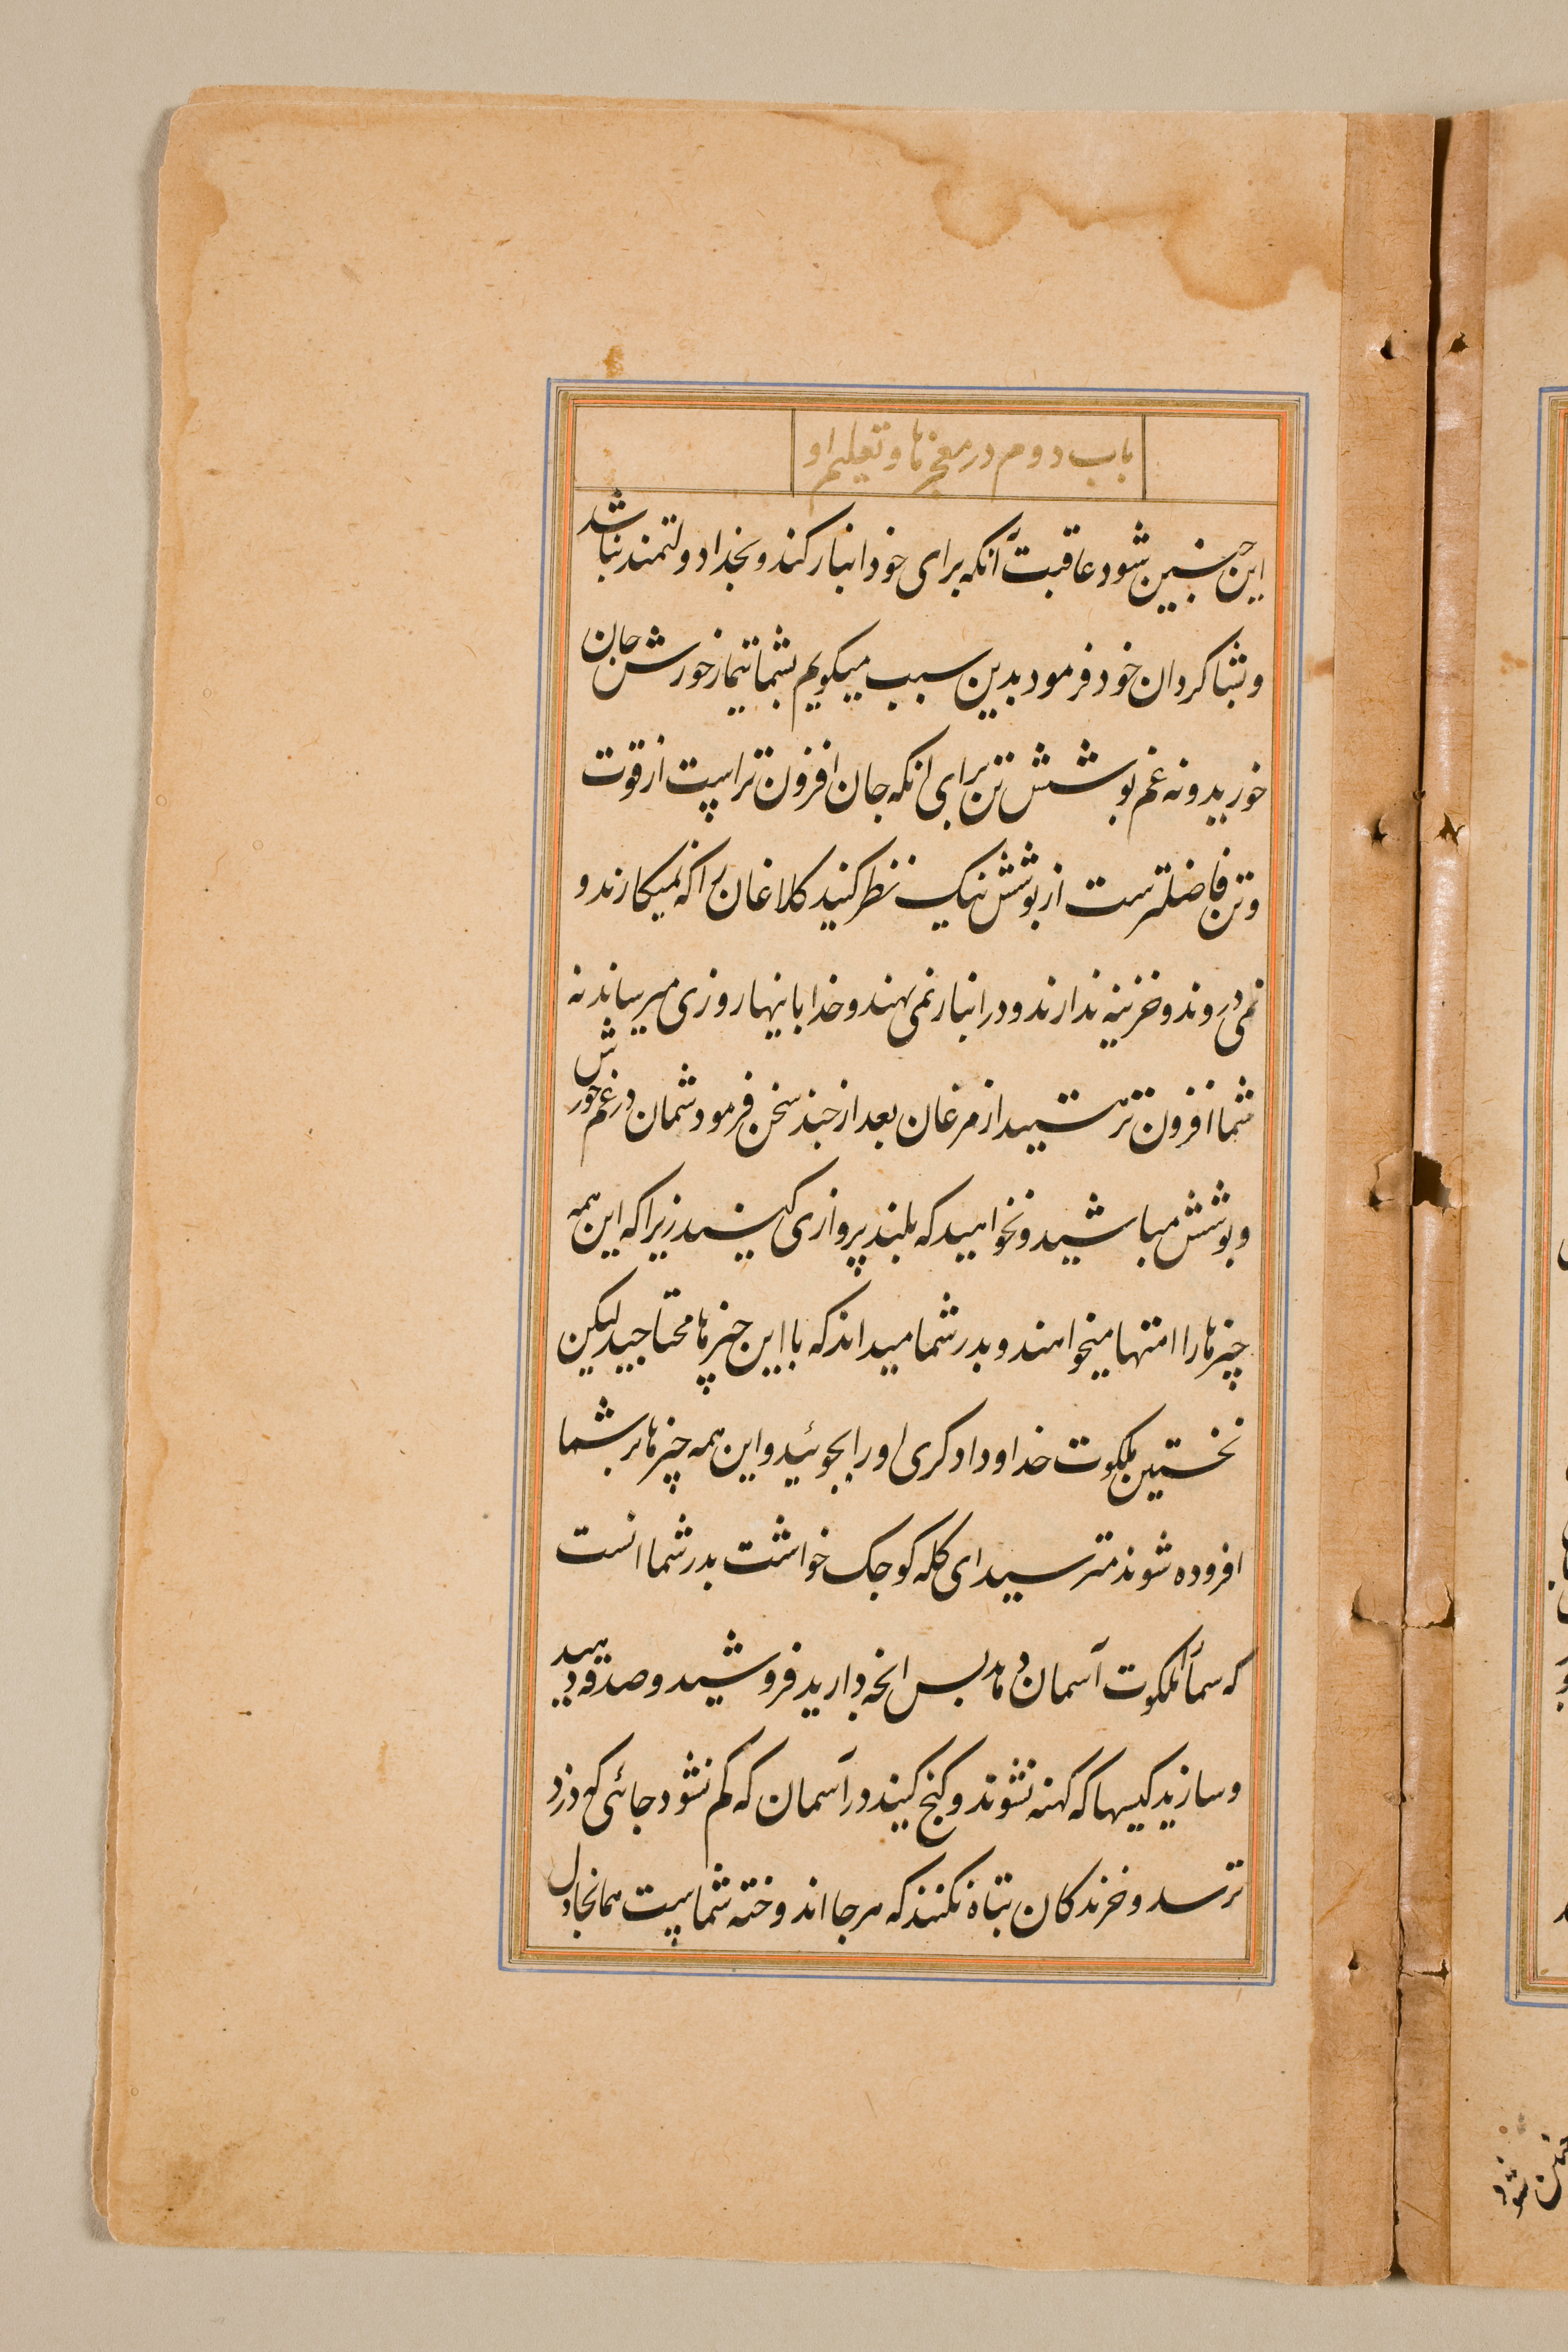 باب دوم در معجزها و تعلیم او
این چنین شود عاقبت آنکه برای خود انبار کند و بخدا دولتمند نباشد
و بشاکردان خود فرمود بدین سبب میکویم بشما تیمار خورش جان
خورید و نه غم پوشش تن برای انکه جان افزون تر است از قوت
و تن فاضلترست از پوشش نیک نظر کنید کلاغان را که نمیکارند و
نمی دروند و خزینه ندارند و در انبار نمی نهند و خدا باینها روزی میرساند نه
شما افزون تر هستید از مرغان بعد از چند سخن فرمود شمان در غم خورش
و پوشش مباشید و نخواهید که بلند پروازی کنید زیرا که این همه
چیزها را امتها میخواهند و پدر شما میداند که با این چیزها محتاجید لیکن
نخستین ملکوت خدا و دادکری او را بجوئید و این همه چیزها بر شما
افزوده شوند مترسید ای کله کوچک خواشت پدر شما انست
که شما را ملکوت آسمان دهد پس انچه دارید فروشید و صدقه دهید
و سازید کیسها که کهنه نشوند و کنج کنید در آسمان که کم نشود جائی که دزد
نرسد و خزندکان تباه نکنند که هر جا اندوخته شماست همانجا دل